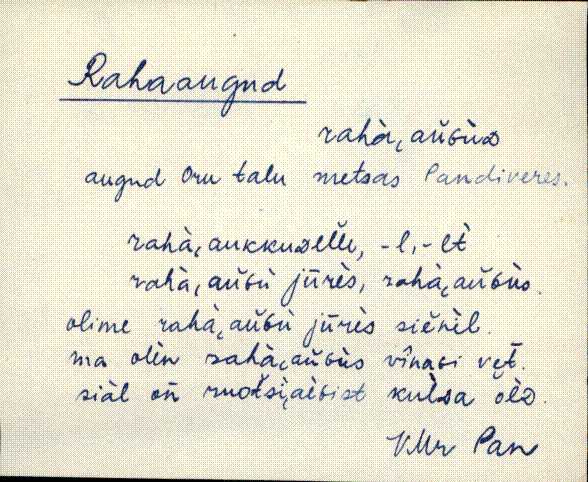 Rahaaugud
rahà, aŭɢùᴅ
augud Oru talu metsas Pandiveres.
rahà, aukkuᴅelle, -l, -lt̀
rahà, aŭɢù jūrès, rahà, aŭɢùs.
olime rahà, aŭɢù jūrès siĕnèl.
ma olèn rahà, aŭɢùs vînaɢi vet̆.
siàl on̆ ruotsi, aèɢist kulda ŏlᴅ.
VMr Pan